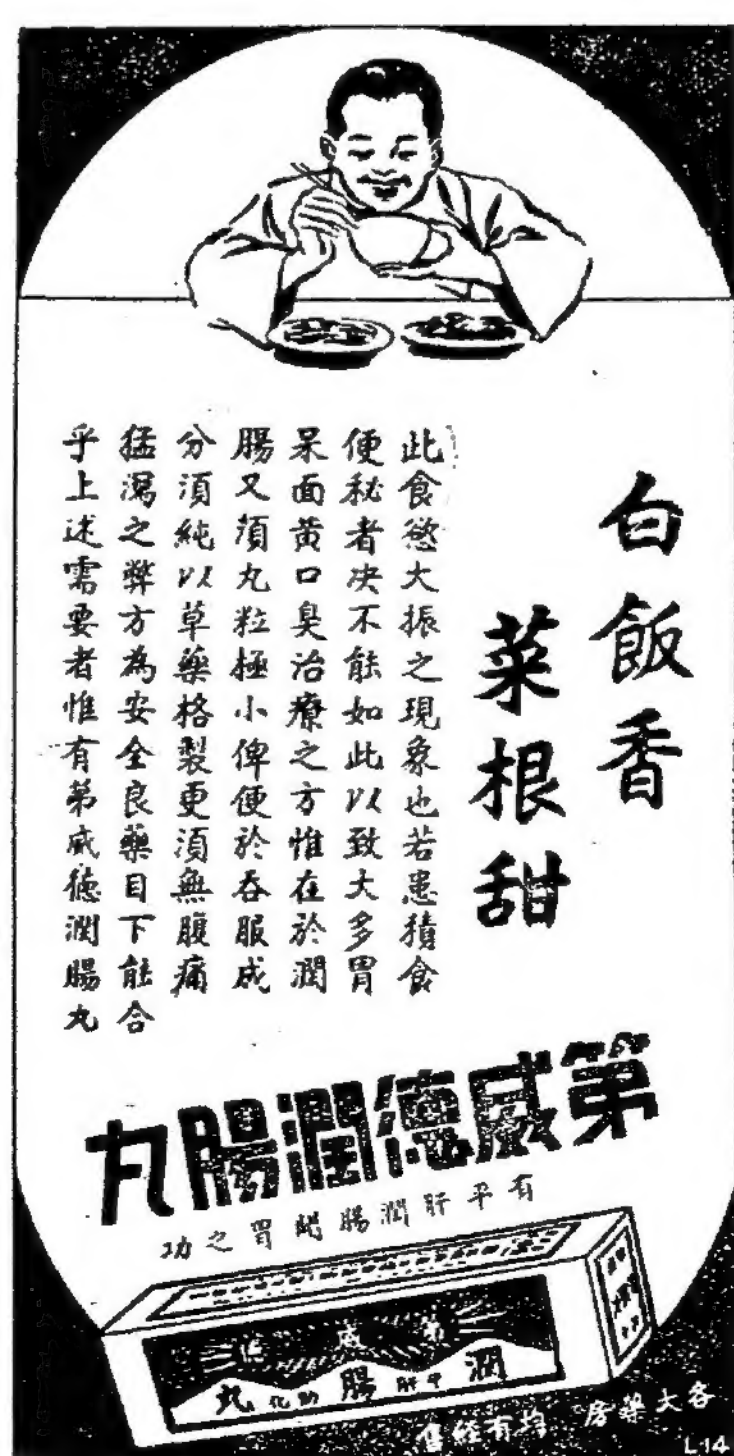 白飯香
菜根甜
此食慾大振之現象也若患積食
便秘者决不能如此以致大多胃
呆面黄口臭治療之方惟在於潤
腸又須丸粒極小俾便於吞服成
分須純以草藥格製更須無腹痛
猛瀉之弊方為安全良藥目下能合
乎上述需要者惟有第威德潤腸丸
第威德潤腸丸
有平肝潤腸健胃之功
第威德
潤平肝腸助化丸
各大藥房均有經售
L14